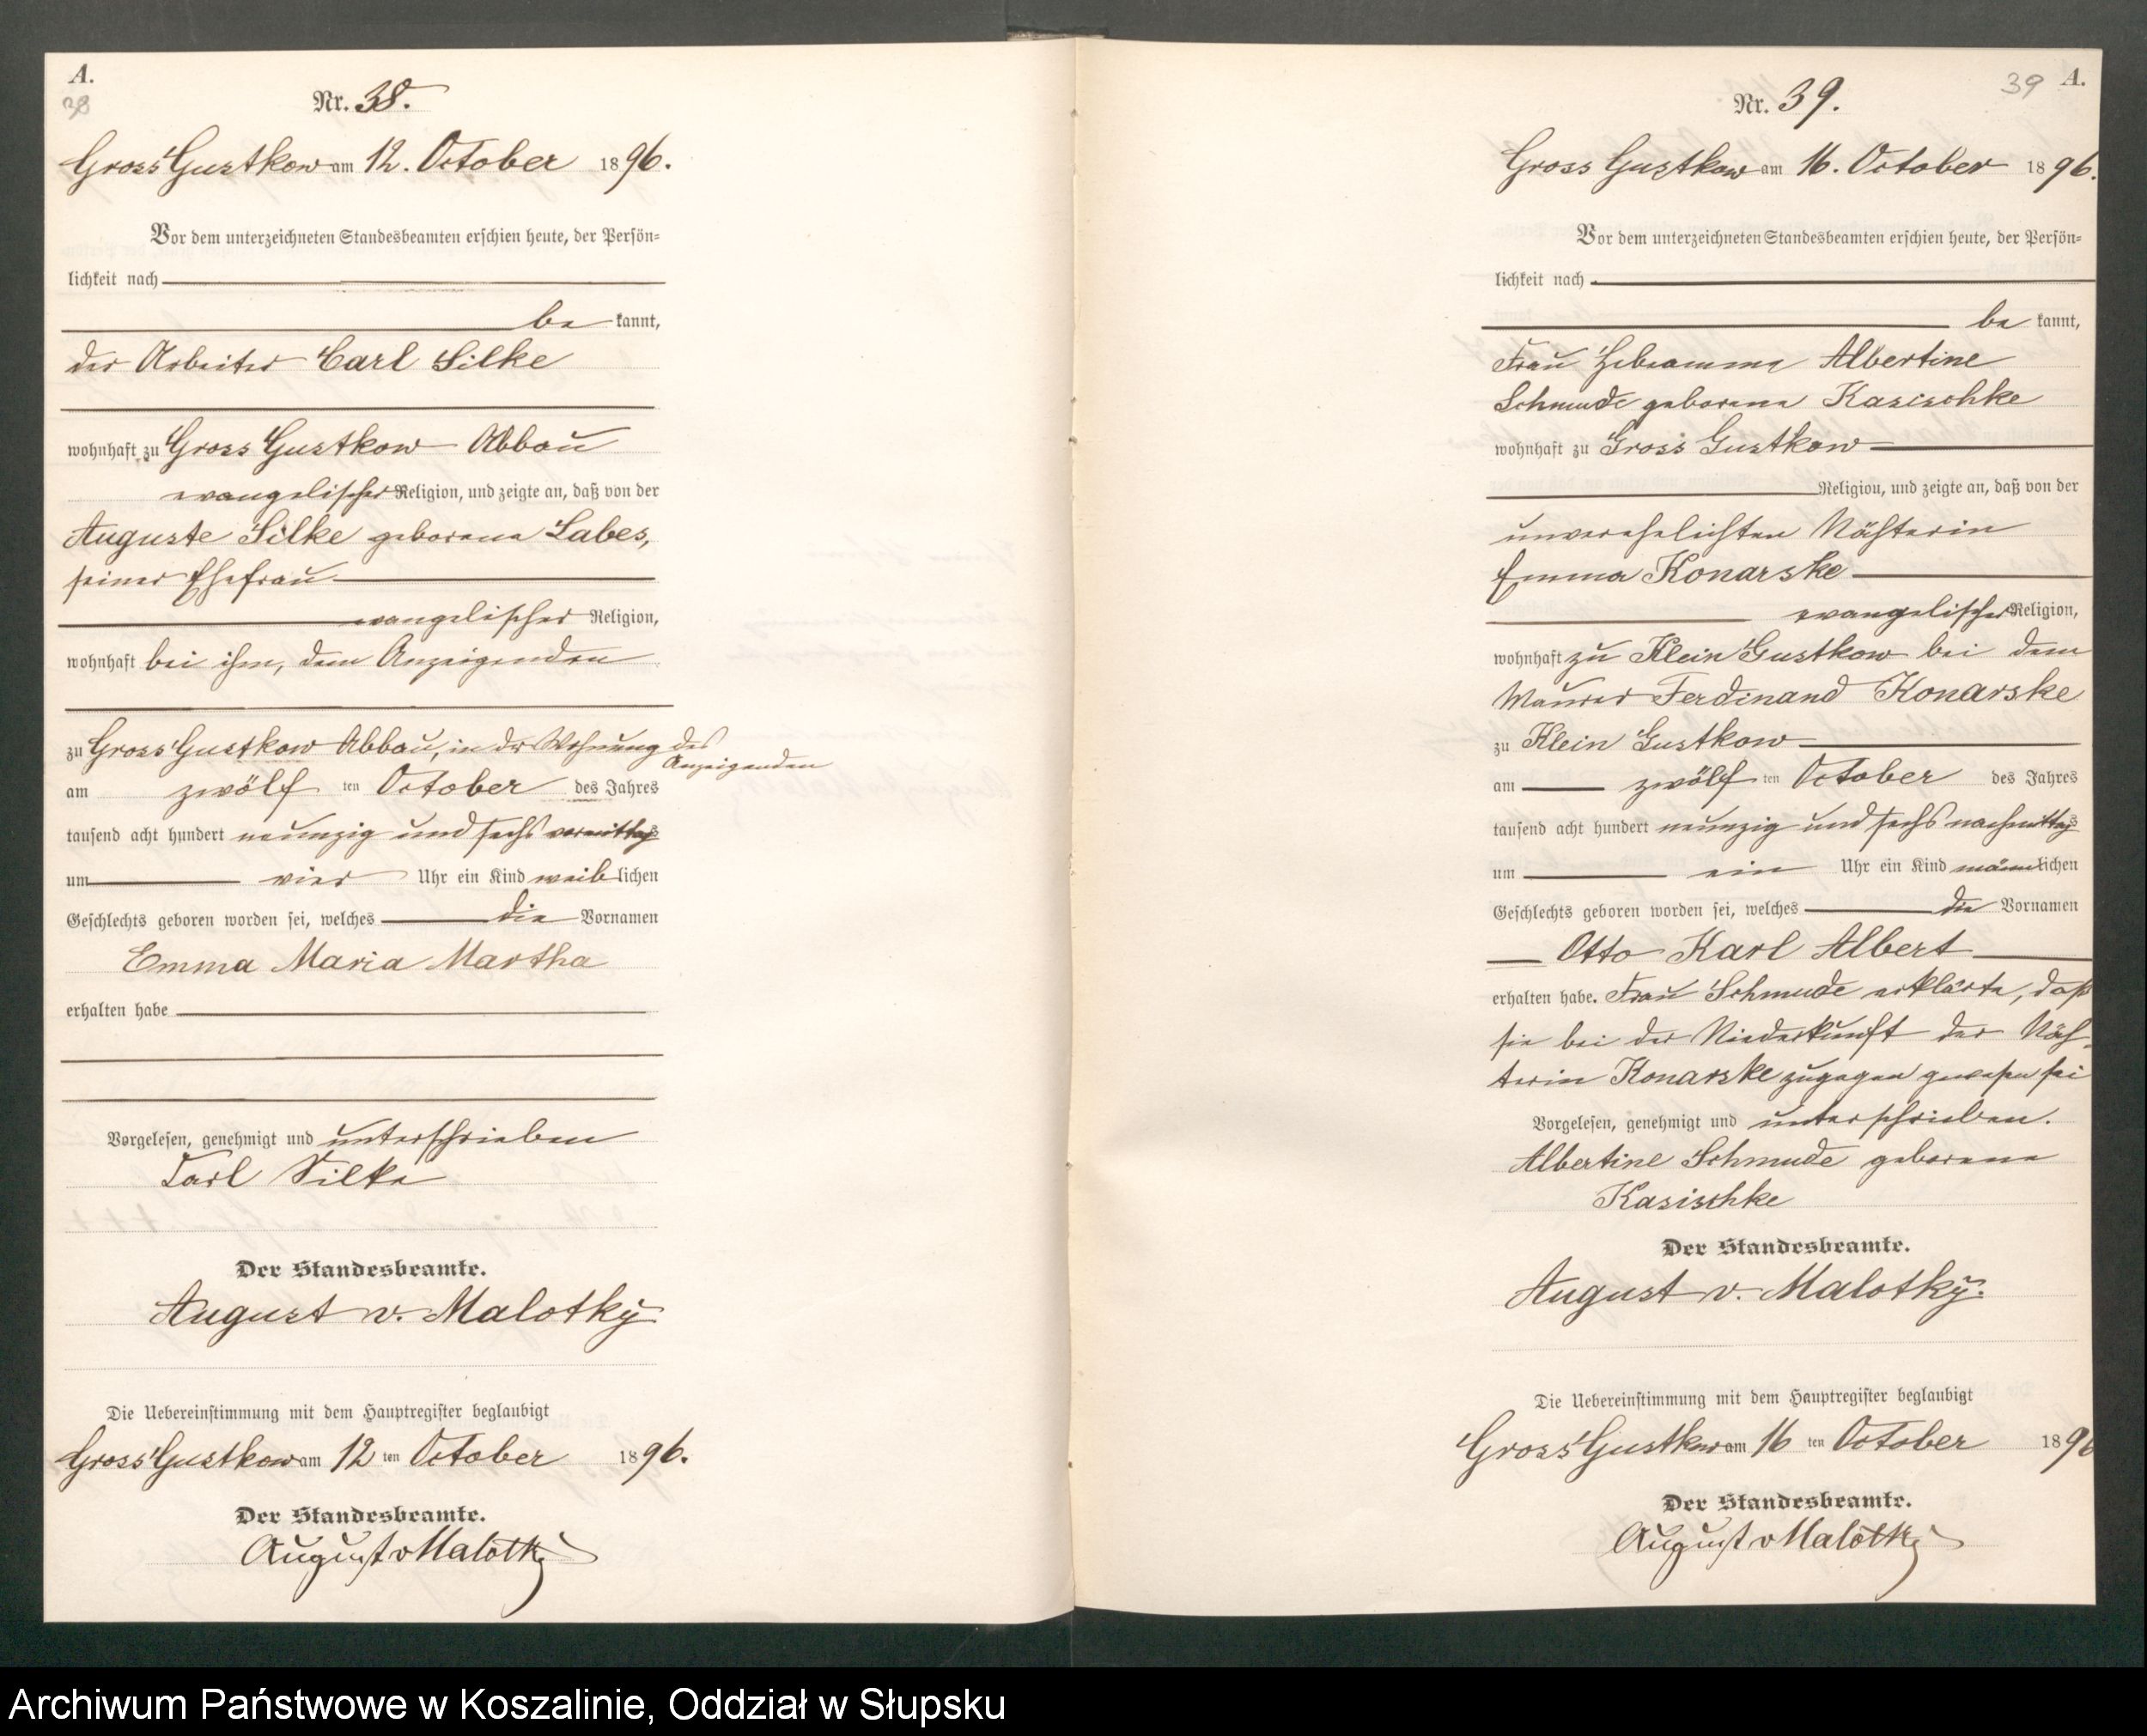 A.
38
Nr. 38.
Gross Gustkow am 12. October 1896.
Vor dem unterzeichneten Standesbeamten erschien heute, der Persön=
lichkeit nach
be kannt,
der Arbeiter Carl Silke
wohnhaft zu Gross Gustkow Abbau
evangelischer Religion, und zeigte an, daß von der
Auguste Silke geborene Labes,
seiner Ehefrau
evangelischer Religion,
wohnhaft bei ihm, dem Anzeigenden
zu Gross Gustkow Abbau, in der Wohnung des
Anzeigenden
am zwölf ten October des Jahres
tausend acht hundert neunzig und sechs vormittags
um vier Uhr ein Kind weib lichen
Geschlechts geboren worden sei, welches die Vornamen
Emma Maria Martha
erhalten habe
Vorgelesen, genehmigt und unterschrieben
Carl Silke
Der Standesbeamte.
August v. Malotky.
Die Uebereinstimmung mit dem Hauptregister beglaubigt
Gross Gustkow am 12 ten October 1896.
Der Standesbeamte.
August v Malotky
39 A.
Nr. 39.
Gross Gustkow am 16. October 1896.
Vor dem unterzeichneten Standesbeamten erschien heute, der Persön=
lichkeit nach
be kannt,
Frau Hebeamme Albertine
Schmude geborene Kasischke
wohnhaft zu Gross Gustkow
Religion, und zeigte an, daß von der
unverehelichten Nähterin
Emma Konarske
evangelischer Religion,
wohnhaft zu Klein Gustkow bei dem
Maurer Ferdinand Konarske
zu Klein Gustkow
am zwölf ten October des Jahres
tausend acht hundert neunzig und sechs nachmittags
um ein Uhr ein Kind männlichen
Geschlechts geboren worden sei, welches die Vornamen
Otto Karl Albert
erhalten habe. Frau Schmude erklärte, daß
sie bei der Niederkunft der Näh=
terin Konarske zugegen gewesen sei
Vorgelesen, genehmigt und unterschrieben.
Albertine Schmude geborene
Kasischke
Der Standesbeamte.
August v. Malotky.
Die Uebereinstimmung mit dem Hauptregister beglaubigt
Gross Gustkow am 16 ten October 1896
Der Standesbeamte.
August v Malotky
Archiwum Państwowe w Koszalinie, Oddział w Słupsku